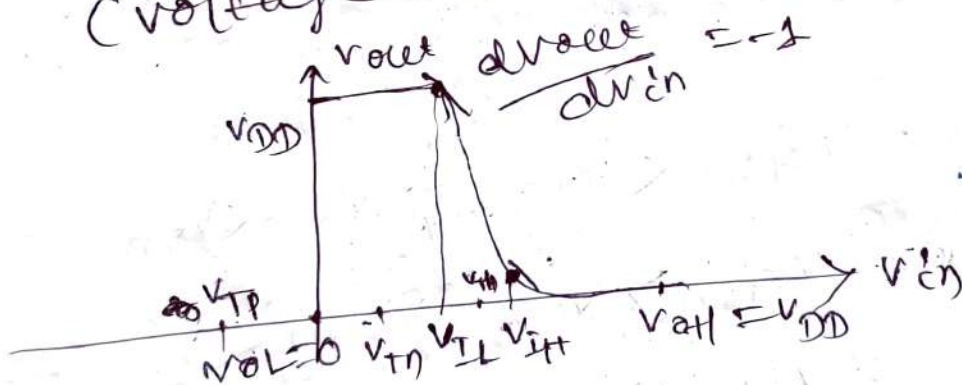 (Volta
Vout dVout = -1
dVin
VDD
Vin
VTP Vth
VOL=0 VTn VIL VIH VOH = VDD